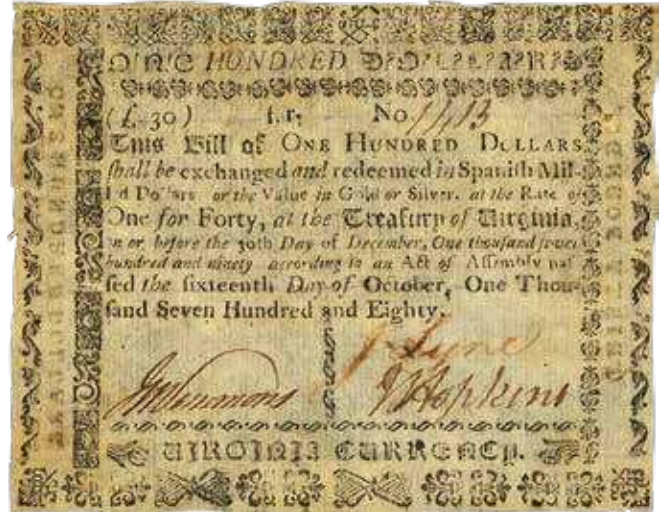 ONE HUNDRED DOLLARS
(£ 30) No 1413
This Bill of ONE HUNDRED DOLLARS
shall be exchanged and redeemed in Spanish Mil-
l'd Dollars or the Value in Gold or Silver, at the Rate of
One for Forty, at the Treasury of Virginia,
on or before the 30th Day of December, One thousand seven
hundred and ninety according to an Act of Assembly pas-
sed the sixteenth Day of October, One Thou-
sand Seven Hundred and Eighty.
J Lyne
J Hopkins
VIRGINIA CURRENCY.